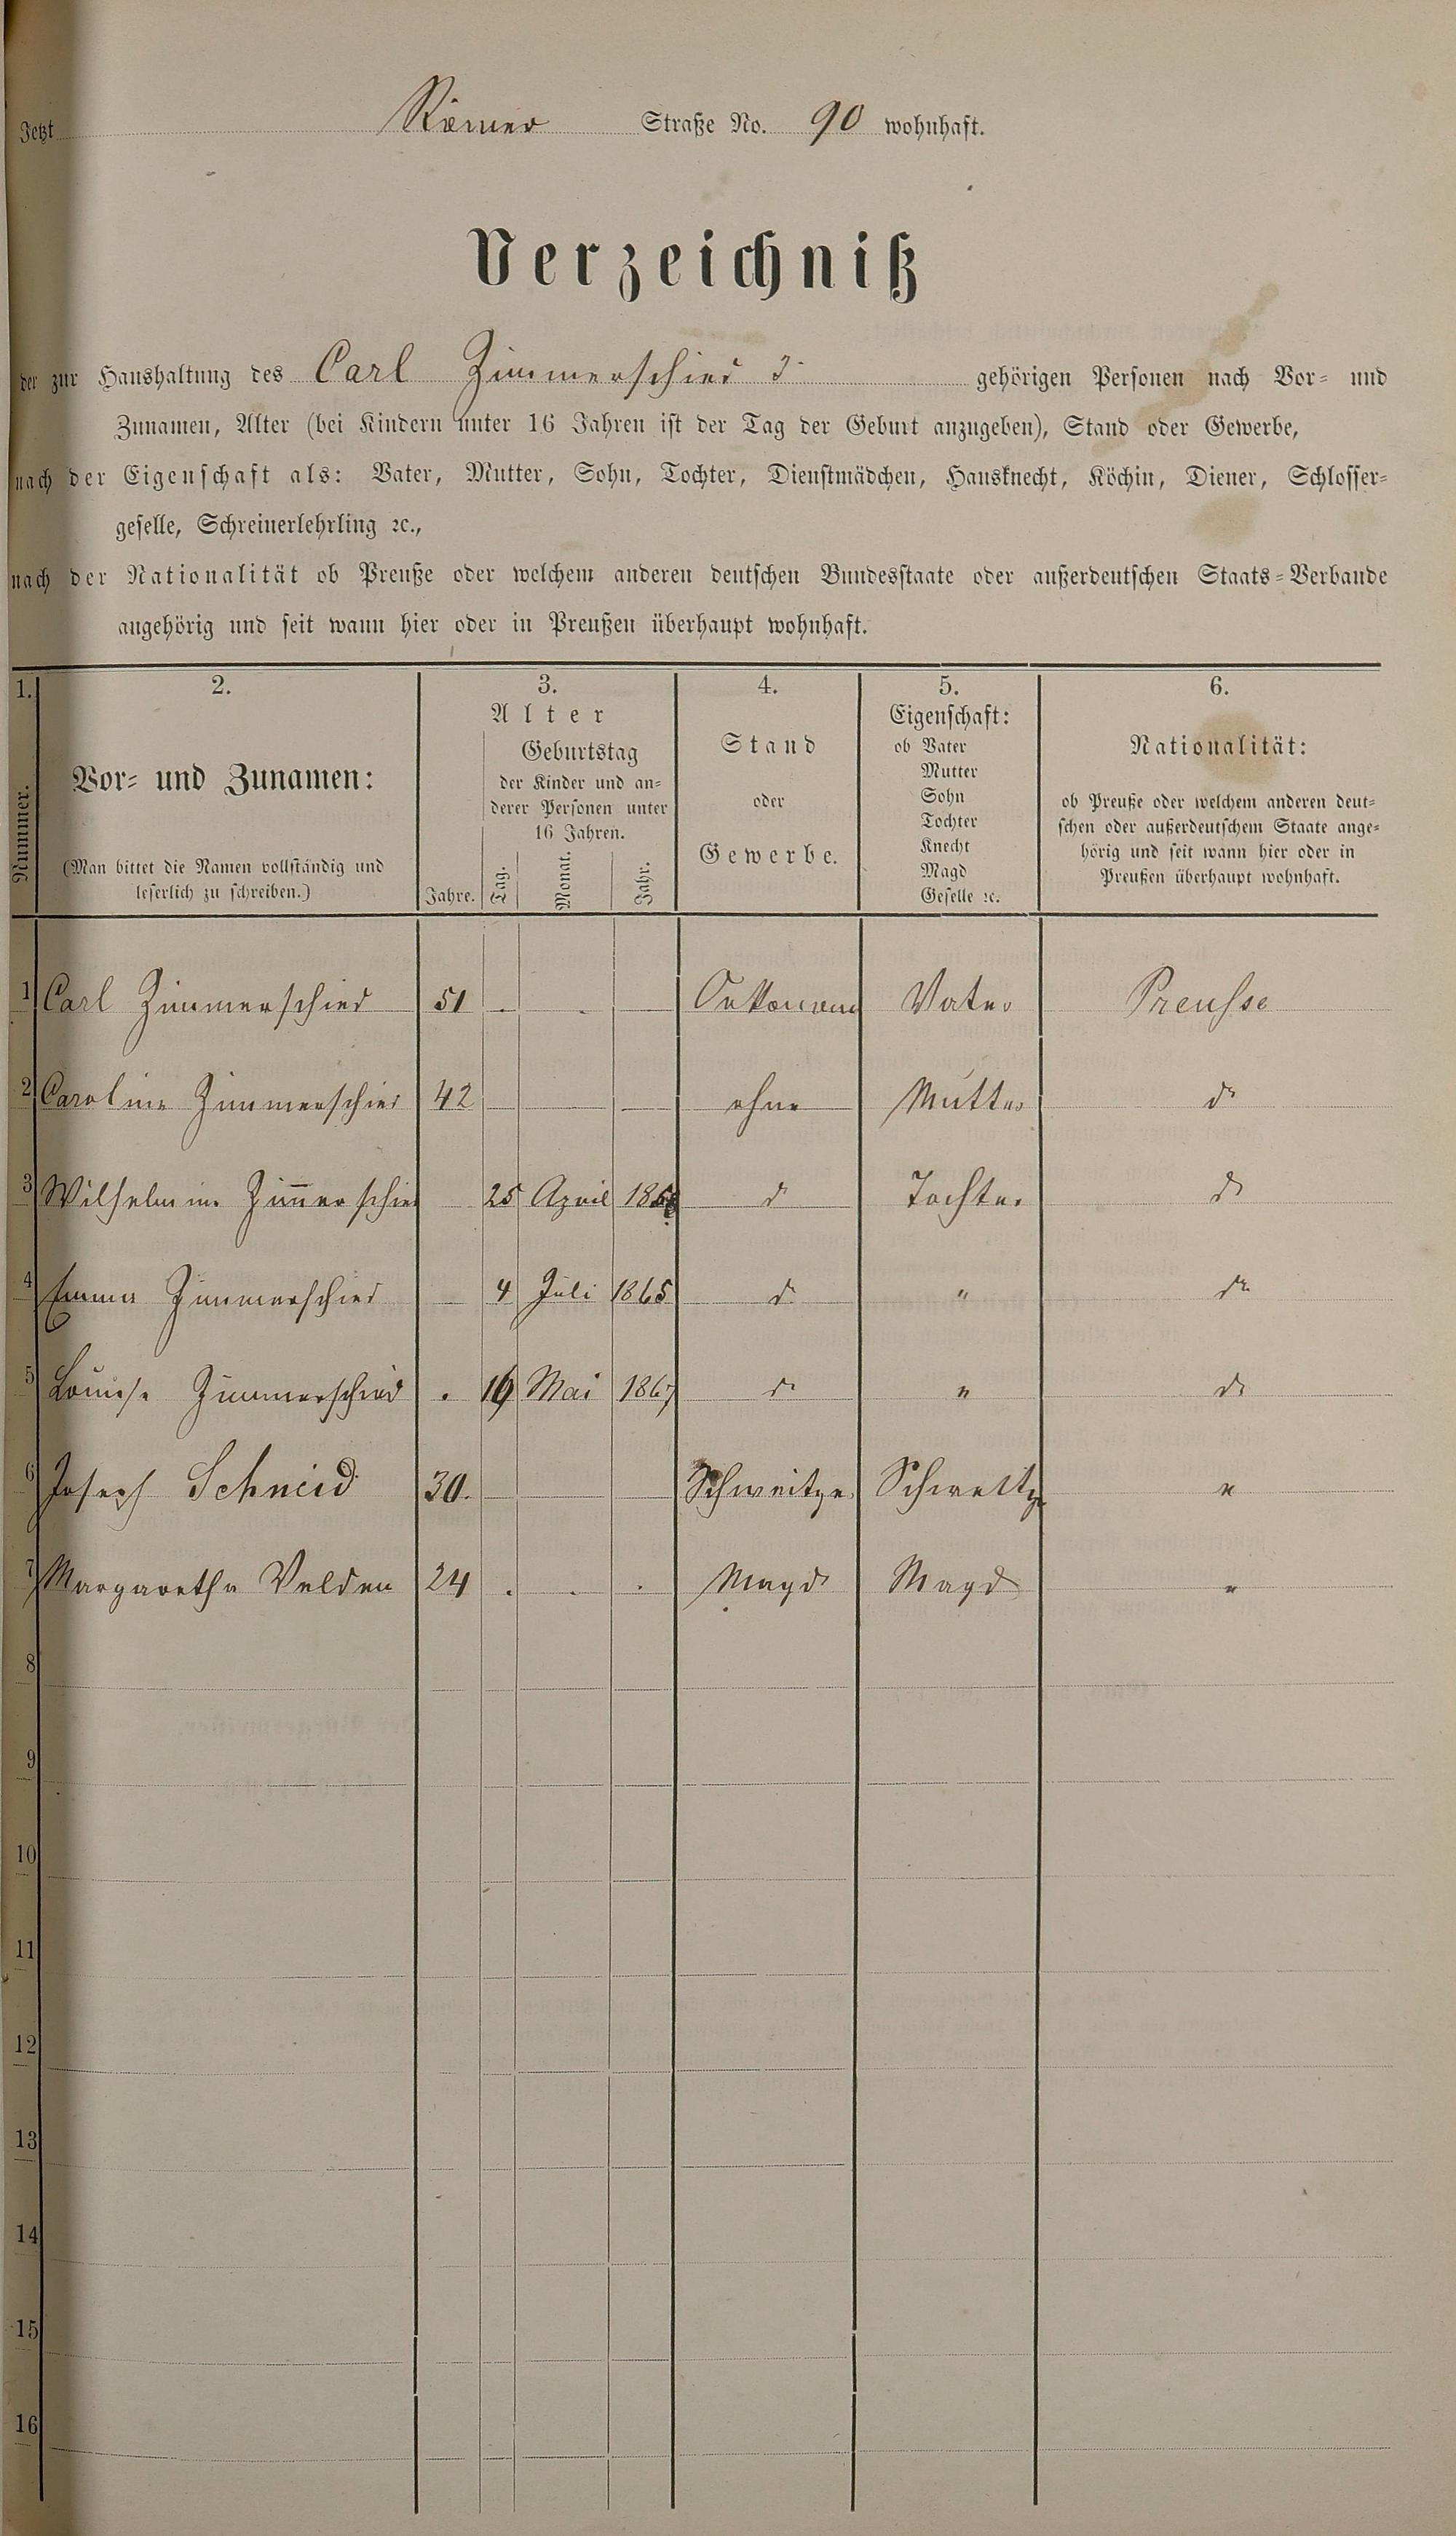 Jetzt Römer Straße No. 90 wohnhaft.
Verzeichniß
der zur Haushaltung des Carl Zimmerschied 3. gehörigen Personen nach Vor- und
Zunamen, Alter (bei Kindern unter 16 Jahren ist der Tag der Geburt anzugeben), Stand oder Gewerbe,
nach der Eigenschaft als: Vater, Mutter, Sohn, Tochter, Dienstmädchen, Hausknecht, Köchin, Diener, Schlosser-
geselle, Schreinerlehrling ꝛc.,
nach der Nationalität ob Preuße oder welchem anderen deutschen Bundesstaate oder außerdeutschen Staats-Verbande
angehörig und seit wann hier oder in Preußen überhaupt wohnhaft.
1. 2. 3. 4. 5. 6.
Nummer.
Vor- und Zunamen:
(Man bittet die Namen vollständig und
leserlich zu schreiben.)
Alter
Jahre.
Geburtstag
der Kinder und an-
derer Personen unter
16 Jahren.
Tag. Monat. Jahr.
Stand
oder
Gewerbe.
Eigenschaft:
ob Vater
Mutter
Sohn
Tochter
Knecht
Magd
Geselle ꝛc.
Nationalität:
ob Preuße oder welchem anderen deut-
schen oder außerdeutschem Staate ange-
hörig und seit wann hier oder in
Preußen überhaupt wohnhaft.
1 Carl Zimmerschied 51 . . Vater Preusse
2 Caroline Zimmerschied 42 ohne Mutter do
3 Wilhelmine Zim̅erschied 25 April do Tochter do
4 Emma Zimmerschied 4 Juli 1865 do " do
5 Louise Zimmerschied . Mai 1867 do " do
6 Joseph Schneid 30. Schweitzer Schweitzer "
7 Margaretha Velden 24 . . . Magd Magd "
8
9
10
11
12
13
14
15
16